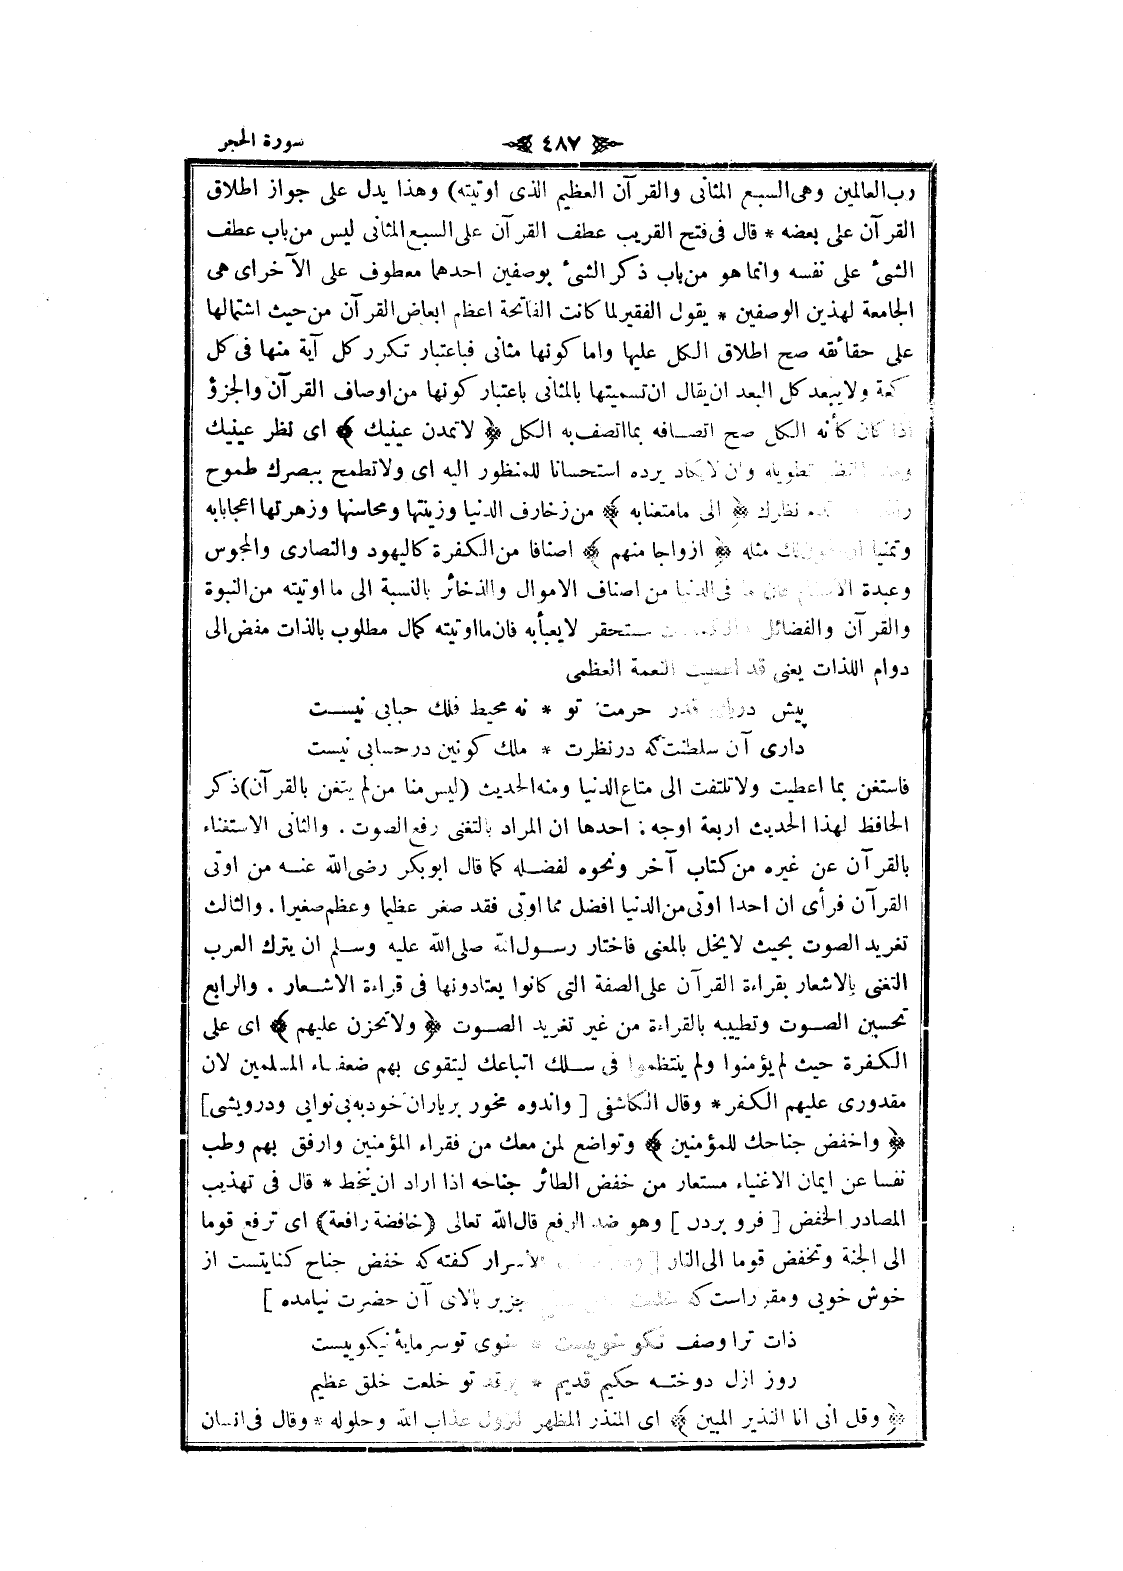 سورة الحجر ٤٨٧
رب العالمين وهى السبع المثانى والقرآن العظيم الذى اوتيته) وهذا يدل على جواز اطلاق
القرآن على بعضه * قال فى فتح القريب عطف القرآن على السبع المثانى ليس من باب عطف
الشئ على نفسه وانما هو من باب ذكر الشئ بوصفين احدهما معطوف على الآخر اى هى
الجامعة لهذين الوصفين * يقول الفقير لما كانت الفاتحة اعظم ابعاض القرآن من حيث اشتمالها
على حقائقه صح اطلاق الكل عليها واما كونها مثانى فباعتبار تكرر كل آية منها فى كل
ولا يبعد كل البعد ان يقال ان تسميتها بالمثانى باعتبار كونها من اوصاف القرآن والجزؤ
اذا كان كأنه الكل صح اتصافه بما اتصف به الكل ﴿ لا تمدن عينيك ﴾ اى نظر عينيك
تطويله وان لا يكاد يرده استحسانا للمنظور اليه اى ولا تطمح ببصرك طموح
نظرك ﴿ الى ما متعنا به ﴾ من زخارف الدنيا وزينتها ومحاسنها وزهرتها اعجابا به
وتمنيا ان مثله ﴿ ازواجا منهم ﴾ اصنافا من الكفرة كاليهود والنصارى والمجوس
وعبدة فى الدنيا من اصناف الاموال والذخائر بالنسبة الى ما اوتيته من النبوة
والقرآن والفضائل مستحقر لا يعبأ به فان ما اوتيته كمال مطلوب بالذات مفض الى
دوام اللذات يعنى قد اعطيت النعمة العظمى
پيش درياى قدر حرمت تو * نه محيط فلك حبابى نيست
دارى آن سلطنت كه در نظرت * ملك كونين در حسابى نيست
فاستغن بما اعطيت ولا تلتفت الى متاع الدنيا ومنه الحديث (ليس منا من لم يتغن بالقرآن) ذكر
الحافظ لهذا الحديث اربعة اوجه : احدها ان المراد بالتغنى رفع الصوت . والثانى الاستغناء
بالقرآن عن غيره من كتاب آخر ونحوه لفضله كما قال ابو بكر رضى الله عنه من اوتى
القرآن فرأى ان احدا اوتى من الدنيا افضل مما اوتى فقد صغر عظيما وعظم صغيرا . والثالث
تغريد الصوت بحيث لا يخل بالمعنى فاختار رسول الله صلى الله عليه وسلم ان يترك العرب
التغنى بالاشعار بقراءة القرآن على الصفة التى كانوا يعتادونها فى قراءة الاشعار . والرابع
تحسين الصوت وتطييبه بالقراءة من غير تغريد الصوت ﴿ ولا تحزن عليهم ﴾ اى على
الكفرة حيث لم يؤمنوا ولم ينتظموا فى سلك اتباعك ليتقوى بهم ضعفاء المسلمين لان
مقدورى عليهم الكفر * وقال الكاشفى [ واندوه مخور برياران خود به بى نوايى ودرويشى ]
﴿ واخفض جناحك للمؤمنين ﴾ وتواضع لمن معك من فقراء المؤمنين وارفق بهم وطب
نفسا عن ايمان الاغنياء مستعار من خفض الطائر جناحه اذا اراد ان ينحط * قال فى تهذيب
المصادر الخفض [ فرو بردن ] وهو ضد الرفع قال الله تعالى (خافضة رافعة) اى ترفع قوما
الى الجنة وتخفض قوما الى النار [ الاسرار كفته كه خفض جناح كنايتست از
خوش خويى ومقرراست كه جز بر بالاى آن حضرت نيامده ]
ذات ترا وصف نكو خوييست * خوى تو سرمايۀ نيكوييست
روز ازل دوخته حكيم قديم * برقد تو خلعت خلق عظيم
﴿ وقل انى انا النذير المبين ﴾ اى المنذر المظهر لنزول عذاب الله وحلوله * وقال فى انسان